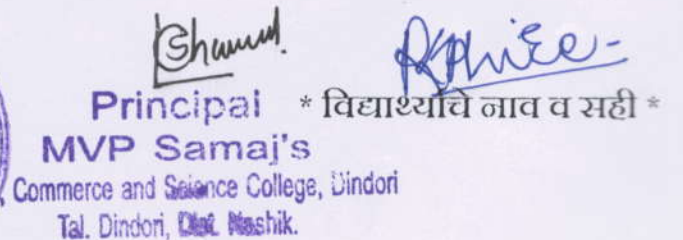 Principal
* विद्यार्थ्याचे नाव व सही *
MVP Samaj's
Commerce and Science College, Dindori
Tal. Dindori, Dist. Nashik.